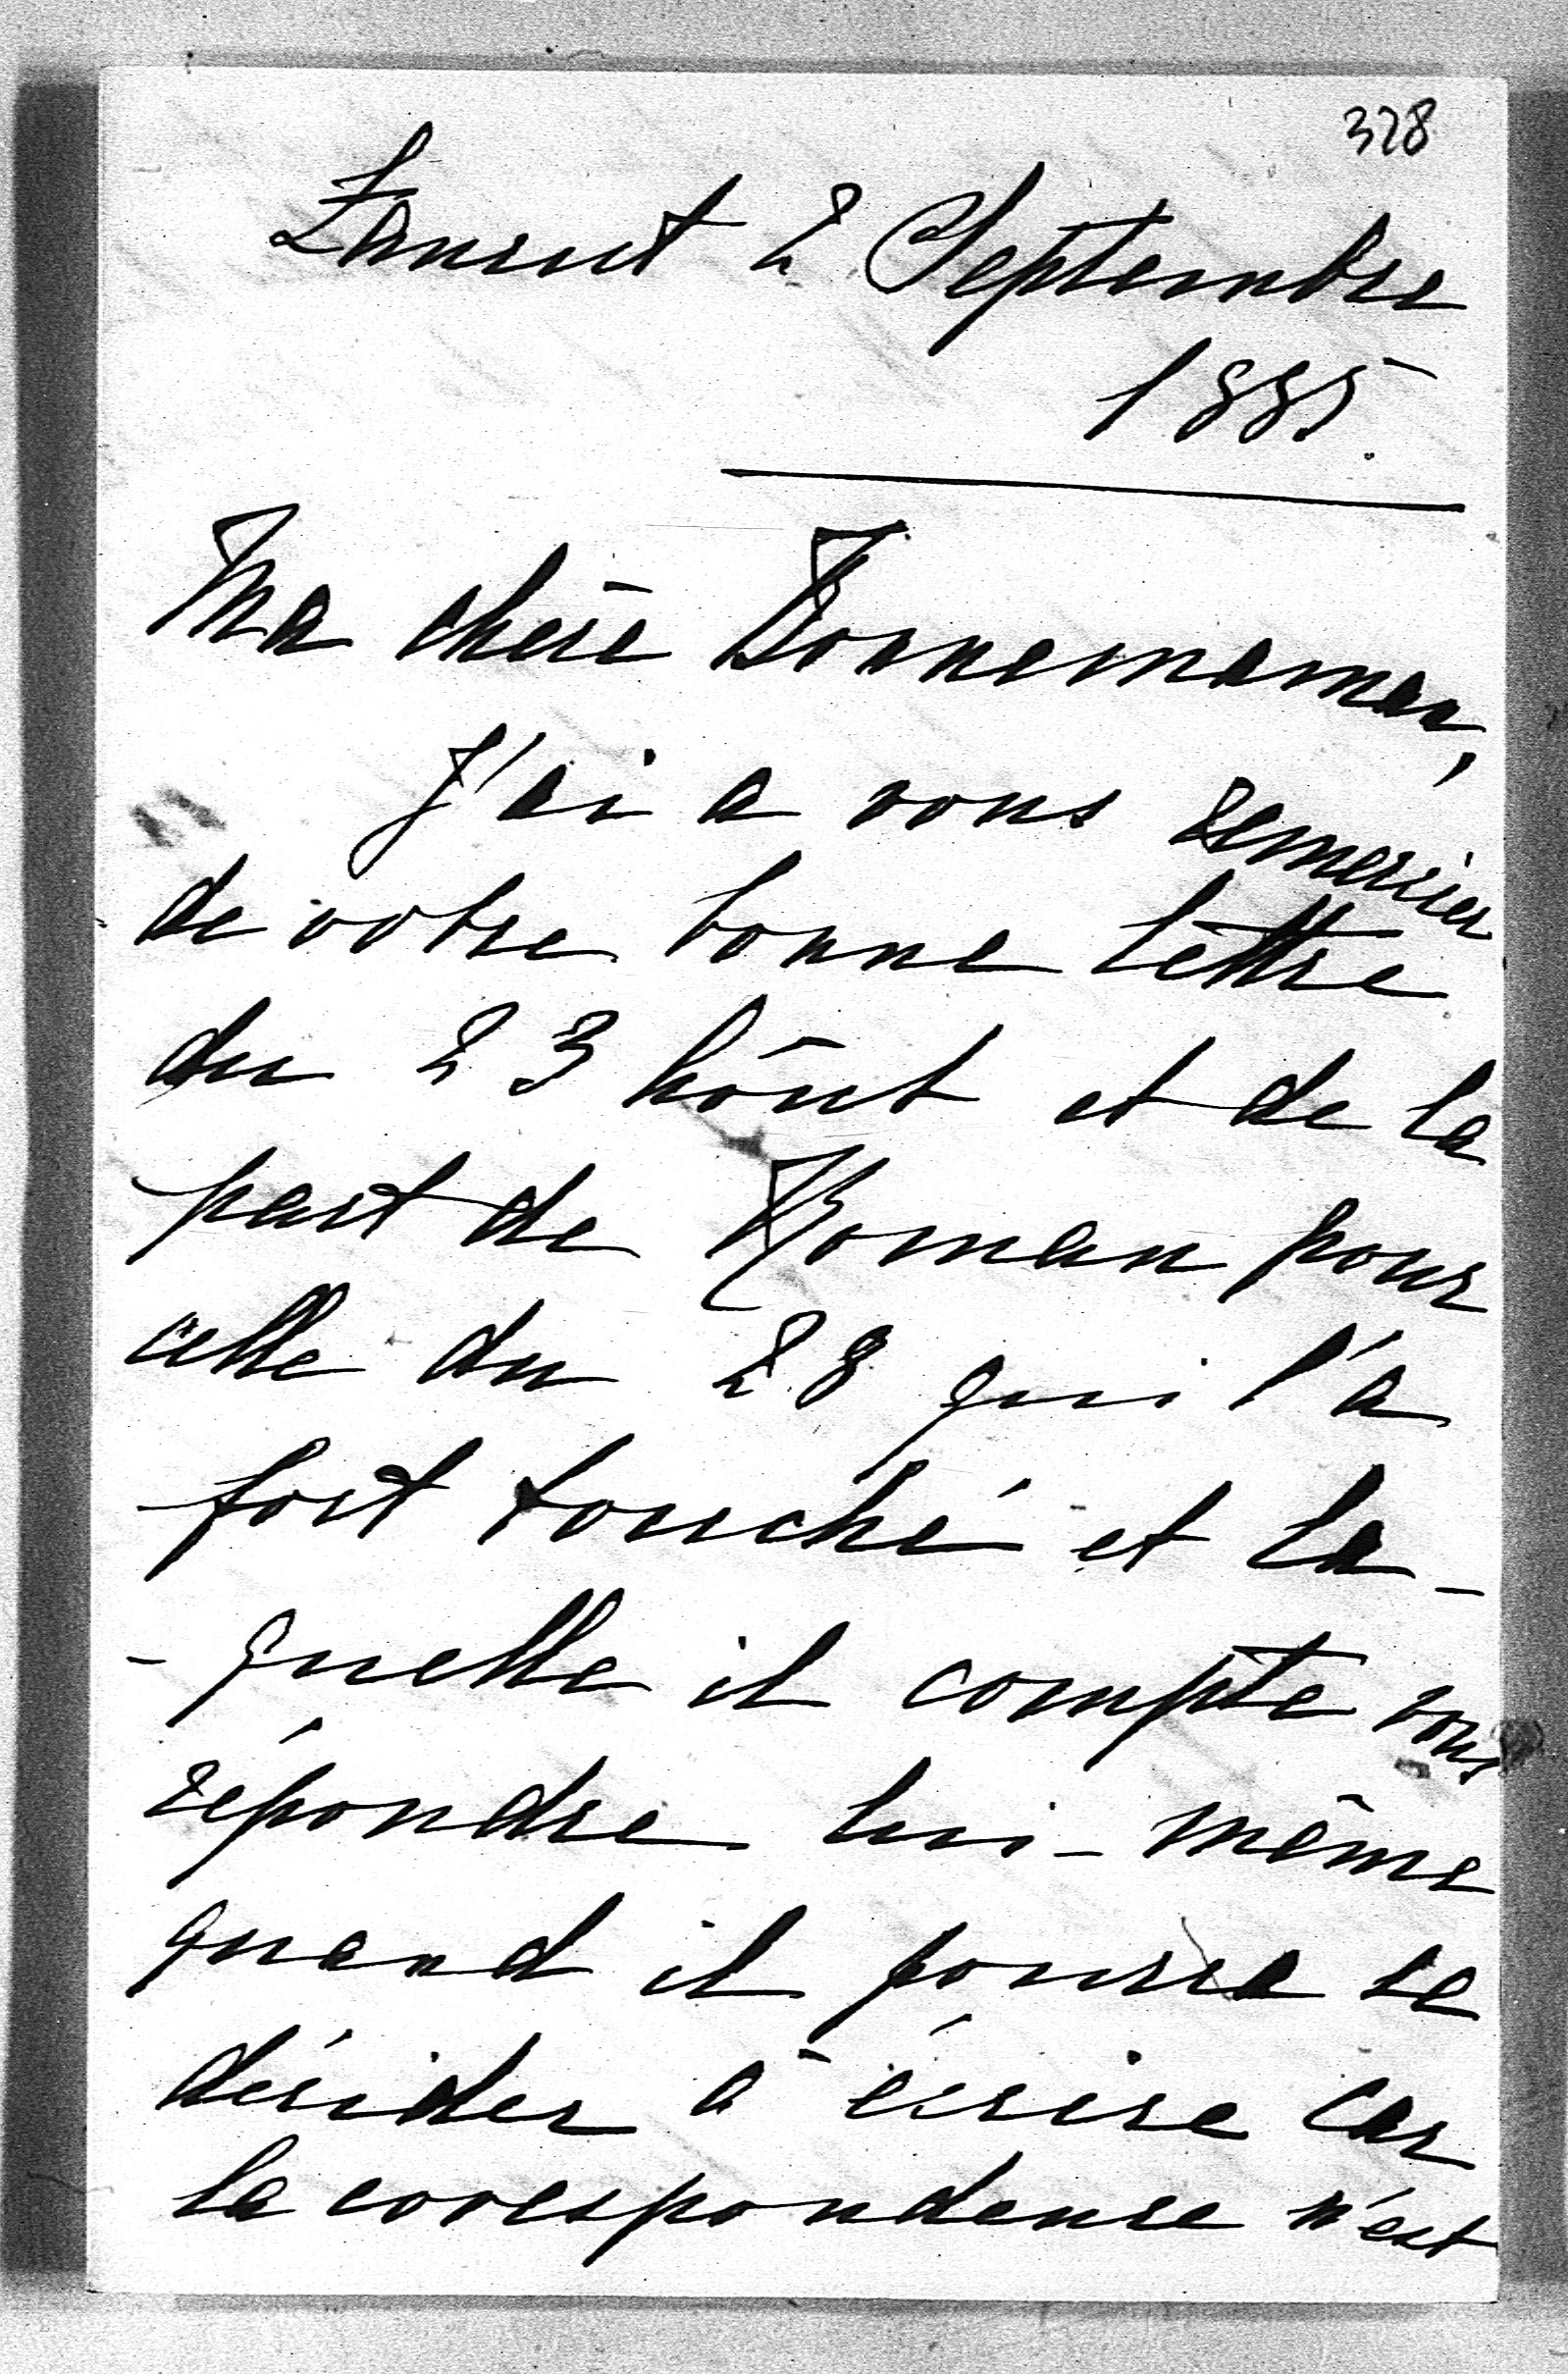 328
Łańcut 2 Septembre
1885.
Ma chère Bonnemaman,
J'ai a vous remercier
de votre bonne lettre
du 23 Aôut et de la
part de Roman pour
celle du 28 qui l'a
fort touché et la-
-quelle il compte vous
répondre lui-même
quand il pourra se
décider à écrire car
la correspondance n'est